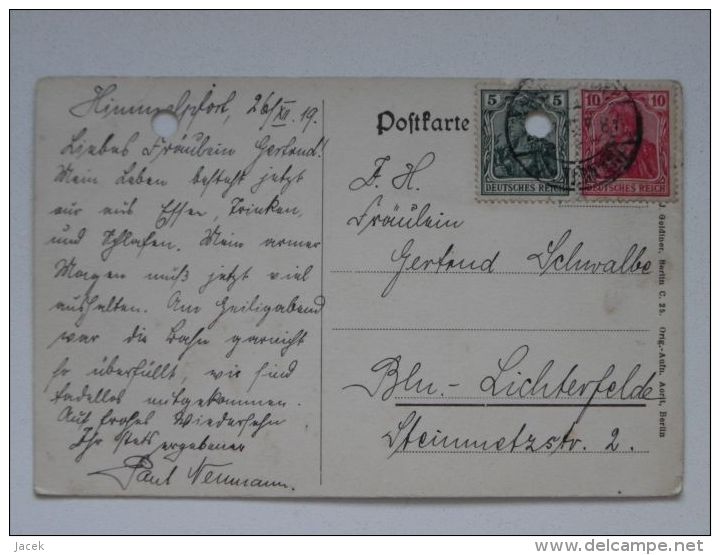 Himmelpfort, 26/XII.19.
Liebes Fräulein Gertrud!
Mein Leben besteht jetzt
nur aus Essen, Trinken
und Schlafen. Mein armer
Magen muß jetzt viel
aushalten. Am Heiligabend
war die Bahn garnicht
so überfüllt, wir sind
tadellos mitgekommen.
Auf frohes Wiedersehn
Ihr stets ergebener
Paul Neumann.
Postkarte
5 5
DEUTSCHES REICH
10 10
DEUTSCHES REICH
F. H.
Fräulein
Gertrud Schwalbe
Bln.-Lichterfelde
Steinmetzstr. 2.
J. Goldiner, Berlin C. 25. Orig.-Aufn. Aorjt, Berlin
jacek
delcampe.net